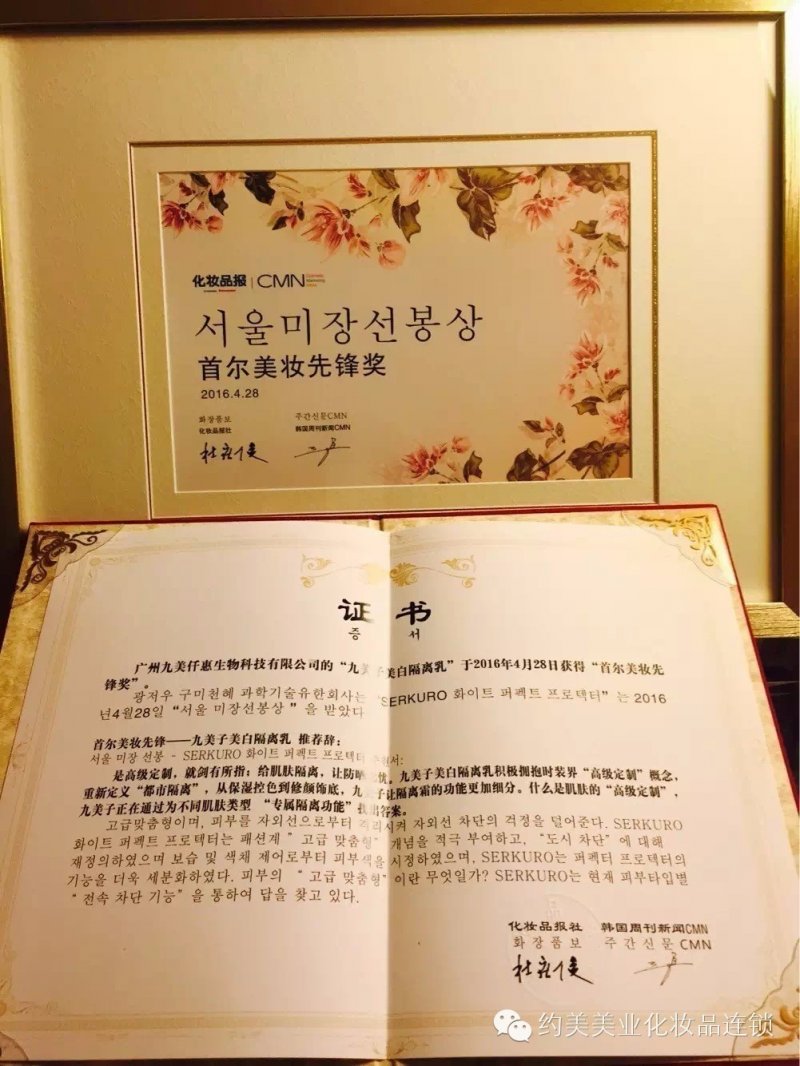 化妆品报 | CMN
서울미장선봉상
首尔美妆先锋奖
2016.4.28
화장품보
化妆品报社
주간신문CMN
韩国周刊新闻CMN
证书
증 서
广州九美仟惠生物科技有限公司的“九美子美白隔离乳”于2016年4月28日获得“首尔美妆先
锋奖”。
광저우 구미천혜 과학기술유한회사는 “SERKURO 화이트 퍼펙트 프로텍터” 는 2016
년4월28일 “서울 미장선봉상 ” 을 받았다
首尔美妆先锋——九美子美白隔离乳 推荐辞：
서울 미장 선봉 - SERKURO 화이트 퍼펙트 프로텍터 서:
是高级定制，就剑有所指；给肌肤隔离，让防晒 忧。九美子美白隔离乳积极拥抱时装界“高级定制”概念，
重新定义“都市隔离”，从保湿控色到修颜饰底，九美子让隔离霜的功能更加细分。什么是肌肤的“高级定制”，
九美子正在通过为不同肌肤类型 “专属隔离功能” 找出答案。
고급맞춤형이며, 피부를 자외선으로부터 격리시켜 자외선 차단의 걱정을 덜어준다. SERKURO
화이트 퍼펙트 프로텍터는 패션계 “ 고급 맞춤형” 개념을 적극 부여하고, “도시 차단” 에 대해
재정의하였으며 보습 및 색채 제어로부터 피부색을 시정하였으며, SERKURO는 퍼펙터 프로텍터의
기능을 더욱 세분화하였다. 피부의 “ 고급 맞춤형” 이란 무엇일가? SERKURO는 현재 피부타입별
“ 전속 차단 기능” 을 통하여 답을 찾고 있다.
化妆品报社 韩国周刊新闻CMN
화장품보 주간신문 CMN
约美美业化妆品连锁